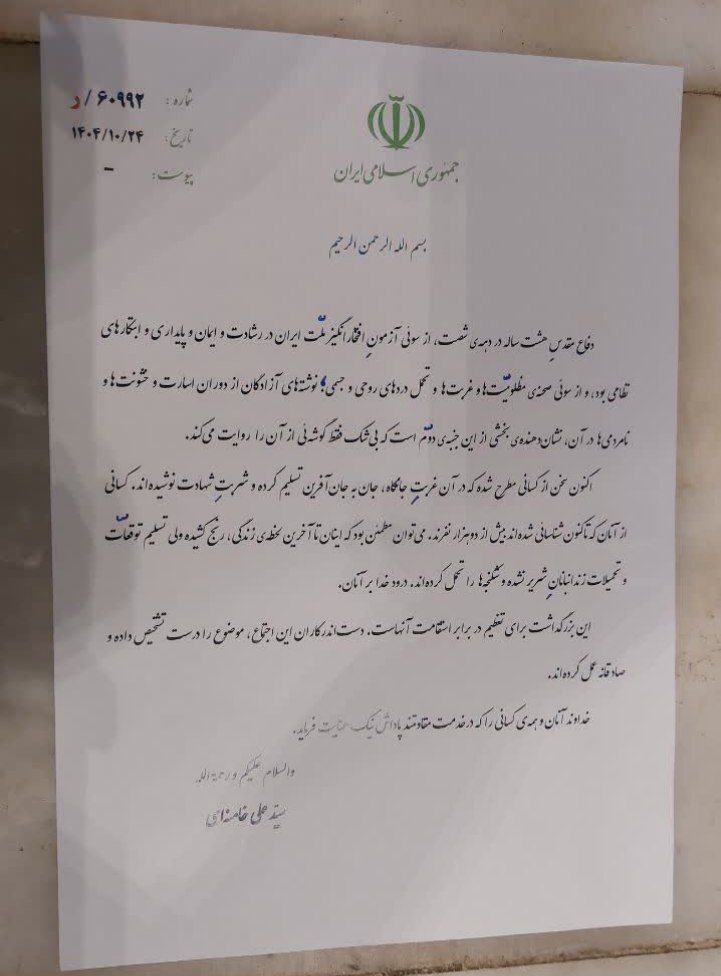 شماره: ۶۰۹۹۲/د
تاریخ: ۱۴۰۴/۱۰/۲۴
پیوست: -
جمهوری اسلامی ایران
بسم الله الرحمن الرحیم
دفاع مقدسِ هشت ساله در دهه‌ی شصت، از سوئی آزمونِ افتخارانگیز ملّت ایران در رشادت و ایمان و پایداری و ابتکارهای
نظامی بود، و از سوئی صحنه‌ی مظلومیّت‌ها و غربت‌ها و تحمّل دردهای روحی و جسمی؛ نوشته‌های آزادگان از دوران اسارت و خشونت‌ها و
نامردمی‌ها در آن، نشان‌دهنده‌ی بخشی از این جنبه‌ی دوّم است که بی‌شک فقط گوشه‌ئی از آن را روایت می‌کند.
اکنون سخن از کسانی مطرح شده که در آن غربتِ جانکاه، جان به جان‌آفرین تسلیم کرده و شربتِ شهادت نوشیده‌اند. کسانی
از آنان که تاکنون شناسائی شده‌اند بیش از دوهزار نفرند. می‌توان مطمئن بود که اینان تا آخرین لحظه‌ی زندگی، رنج کشیده ولی تسلیم توقعّات
و تحمیلات زندانبانانِ شریر نشده و شکنجه‌ها را تحمّل کرده‌اند. درود خدا بر آنان.
این بزرگداشت برای تعظیم در برابر استقامت آنهاست. دست‌اندرکاران این اجتماع، موضوع را درست تشخیص داده و
صادقانه عمل کرده‌اند.
خداوند آنان و همه‌ی کسانی را که در خدمت مقاومتند پاداش نیک عنایت فرماید.
والسلام علیکم و رحمة‌الله
سیّدعلی خامنه‌ای